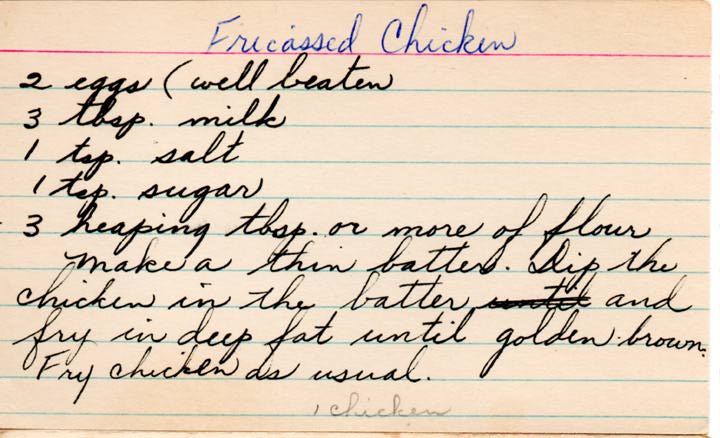 Fricassed Chicken
2 eggs (well beaten
3 tbsp. milk
1 tsp. salt
1 tsp. sugar
3 heaping tbsp. or more of flour
make a thin batter. Dip the
chicken in the batter until and
fry in deep fat until golden brown.
Fry chicken as usual.
1 chicken